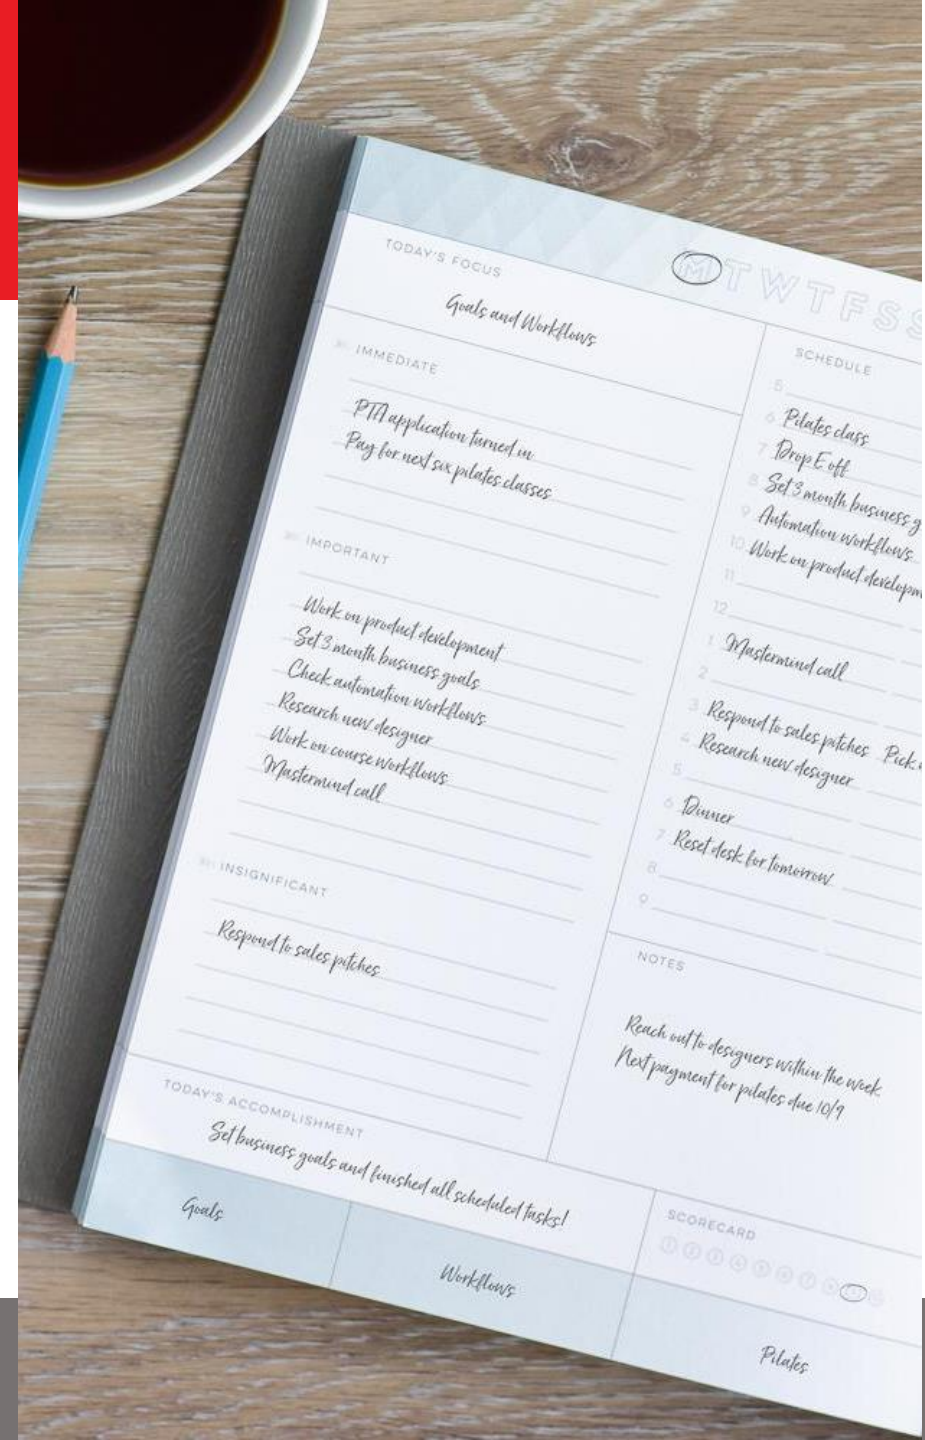 TODAY'S FOCUS
Goals and Workflows
IMMEDIATE
PTA application turned in
Pay for next six pilates classes
IMPORTANT
Work on product development
Set 3 month business goals
Check automation workflows
Research new designer
Work on course workflows
Mastermind call
INSIGNIFICANT
Respond to sales pitches
TODAY'S ACCOMPLISHMENT
Set business goals and finished all scheduled tasks!
Goals
Workflows
M T W T F S S
SCHEDULE
5
6 Pilates class
7 Drop E off
8 Set 3 month business g
9 Automation workflows
10 Work on product developm
11
12
1 Mastermind call
2
3 Respond to sales pitches Pick
4 Research new designer
5
6 Dinner
7 Reset desk for tomorrow
8
9
NOTES
Reach out to designers within the week
Next payment for pilates due 10/9
SCORECARD
1 2 3 4 5 6 7 8 9 10
Pilates